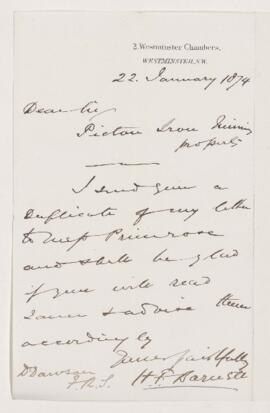 2. Westminster Chambers,
WESTMINSTER, S.W.
22. January 1874
Dear Sir
Picton Iron Mining
property
I send you a
duplicate of my letter
to Messrs Primrose
and shall be glad
if you will read
& advise them
accordingly
Yours faithfully
H. F.
D Dawson
F.R.S.